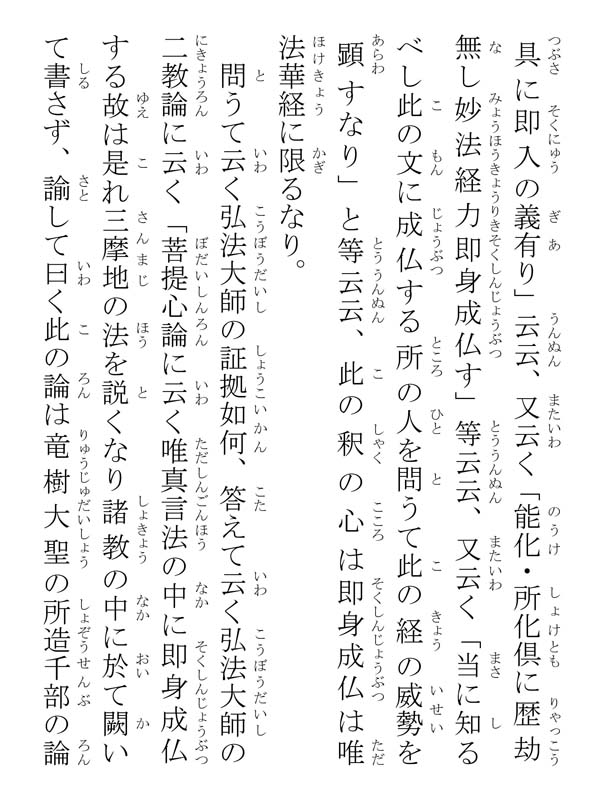 具に即入の義有り」云云、又云く「能化・所化倶に歴劫
無し妙法経力即身成仏す」等云云、又云く「当に知る
べし此の文に成仏する所の人を問うて此の経の威勢を
顕すなり」と等云云、此の釈の心は即身成仏は唯
法華経に限るなり。
問うて云く弘法大師の証拠如何、答えて云く弘法大師の
二教論に云く「菩提心論に云く唯真言法の中に即身成仏
する故は是れ三摩地の法を説くなり諸教の中に於て闕い
て書さず、諭して曰く此の論は竜樹大聖の所造千部の論